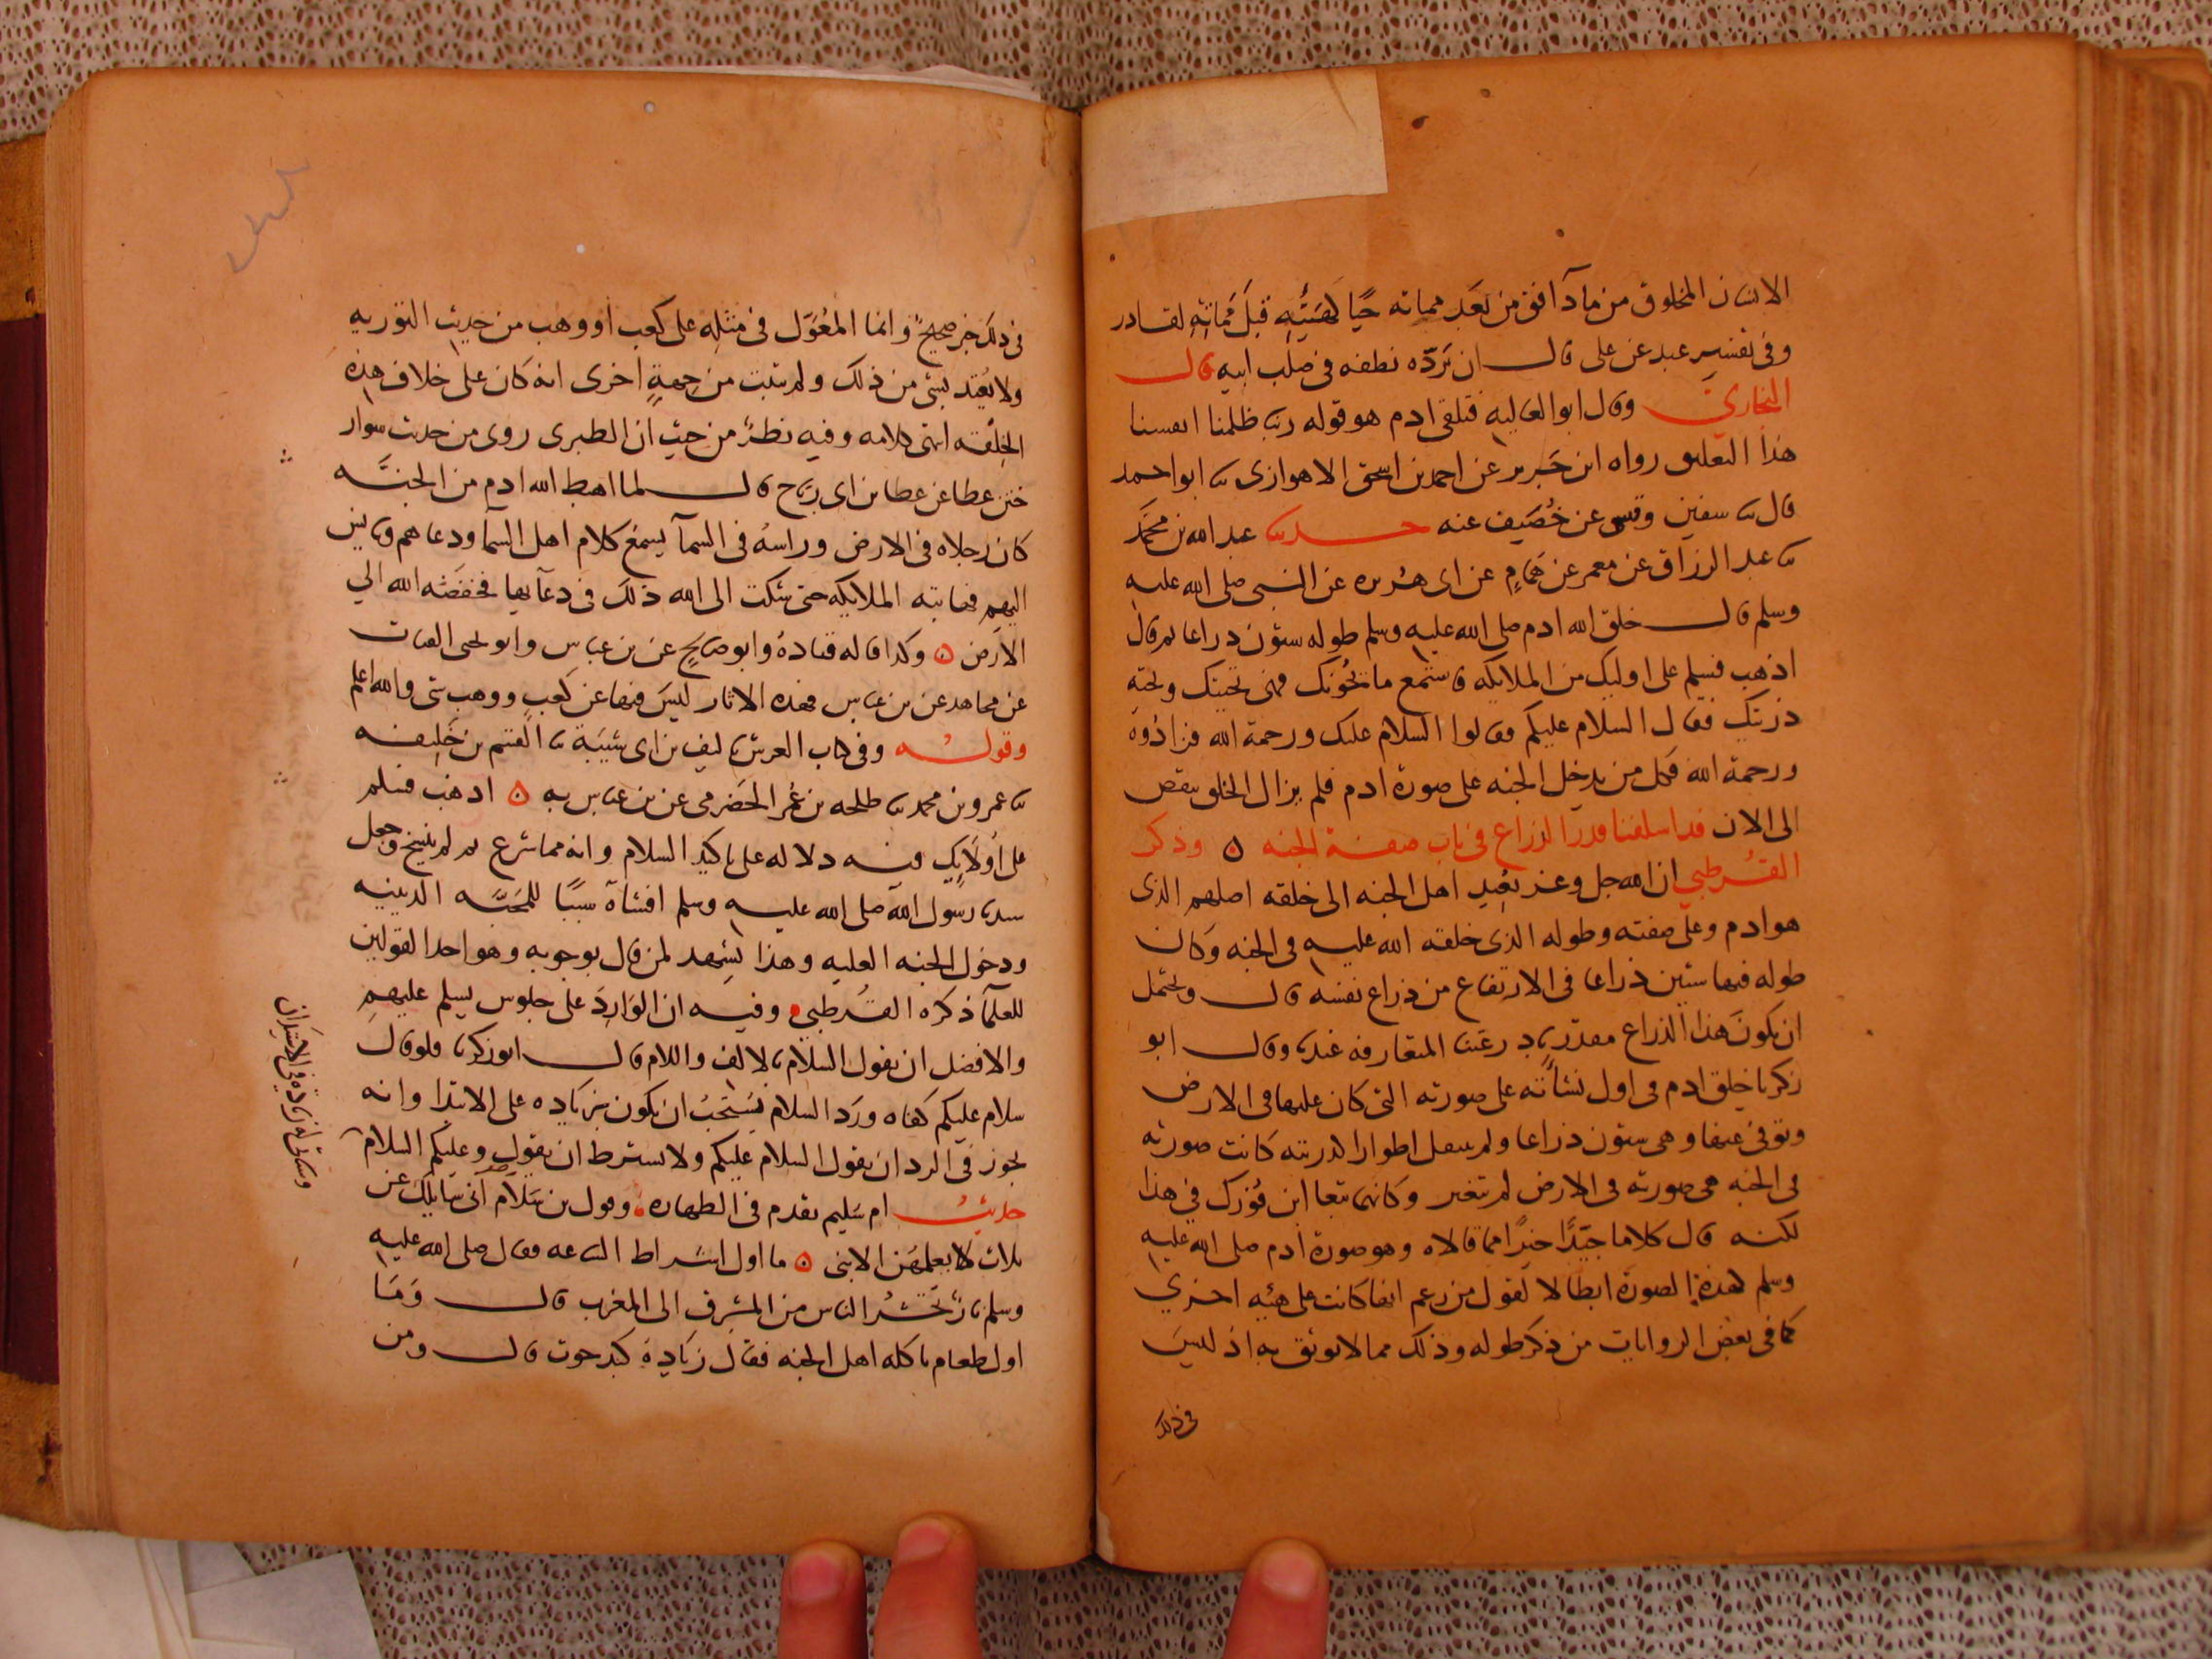 الانسان المخلوق من ماء دافق من بعد مماته حيا كهيئته قبل مماته لقادر
وفى تفسير عبد عن على قال ان نرده نطفه فى صلب ابيه قال
البخارى وقال ابو العاليه فتلقى ادم هو قوله ربنا ظلمنا انفسنا
هذا التعليق رواه ابن جرير عن احمد بن اسحق الاهوازى ثنا ابو احمد
قال ثنا سفين وقيس عن خصيف عنه حدثنا عبد الله بن محمد
ثنا عبد الرزاق عن معمر عن همام عن ابى هريره عن النبى صلى الله عليه
وسلم قال خلق الله ادم صلى الله عليه وسلم طوله ستون ذراعا ثم قال
اذهب فسلم على اوليك من الملايكه فاستمع ما يحيونك فهى تحيتك وتحية
ذريتك فقال السلام عليكم فقالوا السلام عليك ورحمة الله فزادوه
ورحمة الله فكل من يدخل الجنه على صورة ادم فلم يزال الخلق ينقص
الى الان قد اسلفنا قدر الذراع فى باب صفة الجنه ٥ وذكر
القرطبي ان الله جل وعز يعيد اهل الجنه الى خلقه اصلهم الذى
هو ادم وعلى صفته وطوله الذى خلقه الله عليه فى الجنه وكان
طوله فيها ستين ذراعا فى الارتفاع من ذراع نفسه قال ويحتمل
ان يكون هذا الذراع مقدرا المتعارفه عندنا وقال ابو
زكريا خلق ادم فى اول نشأته على صورته التى كان عليها فى الارض
وتوفى عنها وهى ستون ذراعا ولم ينتقل اطوارا كذريته كانت صورته
فى الجنه هى صورته فى الارض لم تتغير وكانهما تبعا ابن فورك فى هذا
لكنه قال كلاما جيدا خيرا مما قالاه وهو صورة ادم صلى الله عليه
وسلم هذة الصورة ابطالا لقول من زعم انها كانت على هيئه اخرى
كما فى بعض الروايات من ذكر طوله وذلك مما لا يوثق به اذ ليس
فى ذلك
فى ذلك خبر صحيح وانما المعول فى مثله على كعب او وهب من حديث التوريه
ولا يعتد بشى من ذلك ولم يثبت من جهة اخرى انه كان على خلاف هذه
الخلقه انتهى كلامه وفيه نظر من حيث ان الطبرى روى من حديث سوار
ختن عطا عن عطا بن ابى رباح قال لما اهبط الله ادم من الجنه
كان رجلاه فى الارض وراسه فى السمآ يسمع كلام اهل السمآ ودعاهم ويانس
اليهم فهابته الملايكه حتى شكت الى الله ذلك فى دعآيها فخفضه الله الى
الارض ٥ وكذا قاله قتادة وابو صالح عن بن عباس وابو يحيى القتات
عن مجاهد عن بن عباس فهذه الاثار ليس فيها عن كعب ووهب شى والله اعلم
وقوله وفى كتاب العرش لابن ابى شيبة ثنا القسم بن خليفه
ثنا عمرو بن محمد ثنا طلحه بن عمر الحضرمى عن بن عباس به ٥ اذهب فسلم
على اولايك فيه دلاله على تاكيد السلام وانه مما شرع ثم لم ينسخ وجعل
سيدنا رسول الله صلى الله عليه وسلم افشاه سببا للمحبه الدينيه
ودخول الجنه العليه وهذا يشهد لمن قال بوجوبه وهو احد القولين
للعلمآ ذكره القرطبي وفيه ان الوارد على جلوس يسلم عليهم
والافضل ان يقول السلام بالالف واللام قال ابو زكريا فلو قال
سلام عليكم كفاه ورد السلام يستحب ان يكون بزياده على الابتدا وانه
يجوز فى الرد ان يقول السلام عليكم ولا يشترط ان يقول وعليكم السلام
حديث ام سليم تقدم فى الطهاره وقول بن سلام انى سايلك عن
ثلاث لا يعلمهن الا نبى ٥ ما اول اشراط الساعه فقال صلى الله عليه
وسلم نار تحشر الناس من المشرق الى المغرب قال وما
اول طعام ياكله اهل الجنه فقال زيادة كبد حوت قال ومن